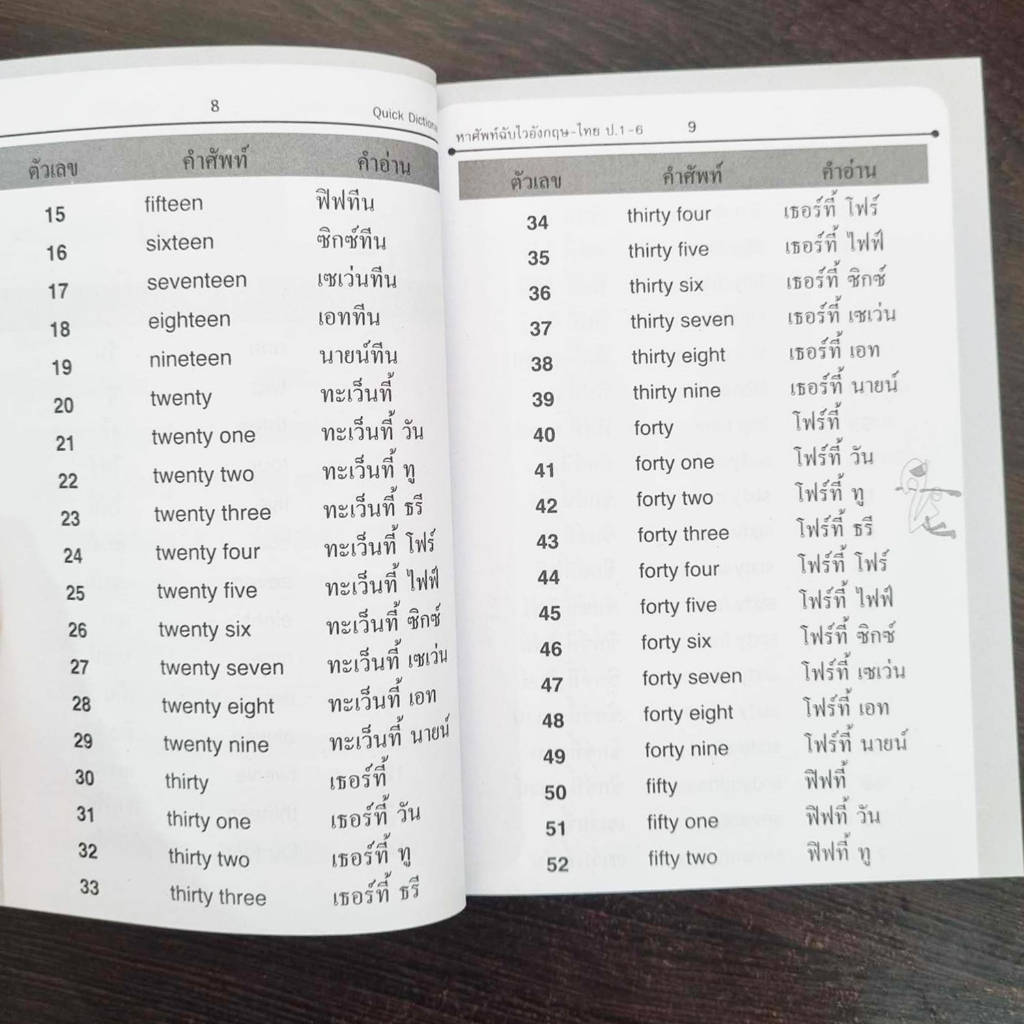 8 Quick Dictiona
ตัวเลข คำศัพท์ คำอ่าน
15 fifteen ฟิฟทีน
16 sixteen ซิกซ์ทีน
17 seventeen เซเว่นทีน
18 eighteen เอททีน
19 nineteen นายน์ทีน
20 twenty ทะเว็นที้
21 twenty one ทะเว็นที้ วัน
22 twenty two ทะเว็นที้ ทู
23 twenty three ทะเว็นที้ ธรี
24 twenty four ทะเว็นที้ โฟร์
25 twenty five ทะเว็นที้ ไฟฟ์
26 twenty six ทะเว็นที้ ซิกซ์
27 twenty seven ทะเว็นที้ เซเว่น
28 twenty eight ทะเว็นที้ เอท
29 twenty nine ทะเว็นที้ นายน์
30 thirty เธอร์ที้
31 thirty one เธอร์ที้ วัน
32 thirty two เธอร์ที้ ทู
33 thirty three เธอร์ที้ ธรี
หาศัพท์ฉับไวอังกฤษ-ไทย ป.1-6 9
ตัวเลข คำศัพท์ คำอ่าน
34 thirty four เธอร์ที้ โฟร์
35 thirty five เธอร์ที้ ไฟฟ์
36 thirty six เธอร์ที้ ซิกซ์
37 thirty seven เธอร์ที้ เซเว่น
38 thirty eight เธอร์ที้ เอท
39 thirty nine เธอร์ที้ นายน์
40 forty โฟร์ที้
41 forty one โฟร์ที้ วัน
42 forty two โฟร์ที้ ทู
43 forty three โฟร์ที้ ธรี
44 forty four โฟร์ที้ โฟร์
45 forty five โฟร์ที้ ไฟฟ์
46 forty six โฟร์ที้ ซิกซ์
47 forty seven โฟร์ที้ เซเว่น
48 forty eight โฟร์ที้ เอท
49 forty nine โฟร์ที้ นายน์
50 fifty ฟิฟที้
51 fifty one ฟิฟที้ วัน
52 fifty two ฟิฟที้ ทู